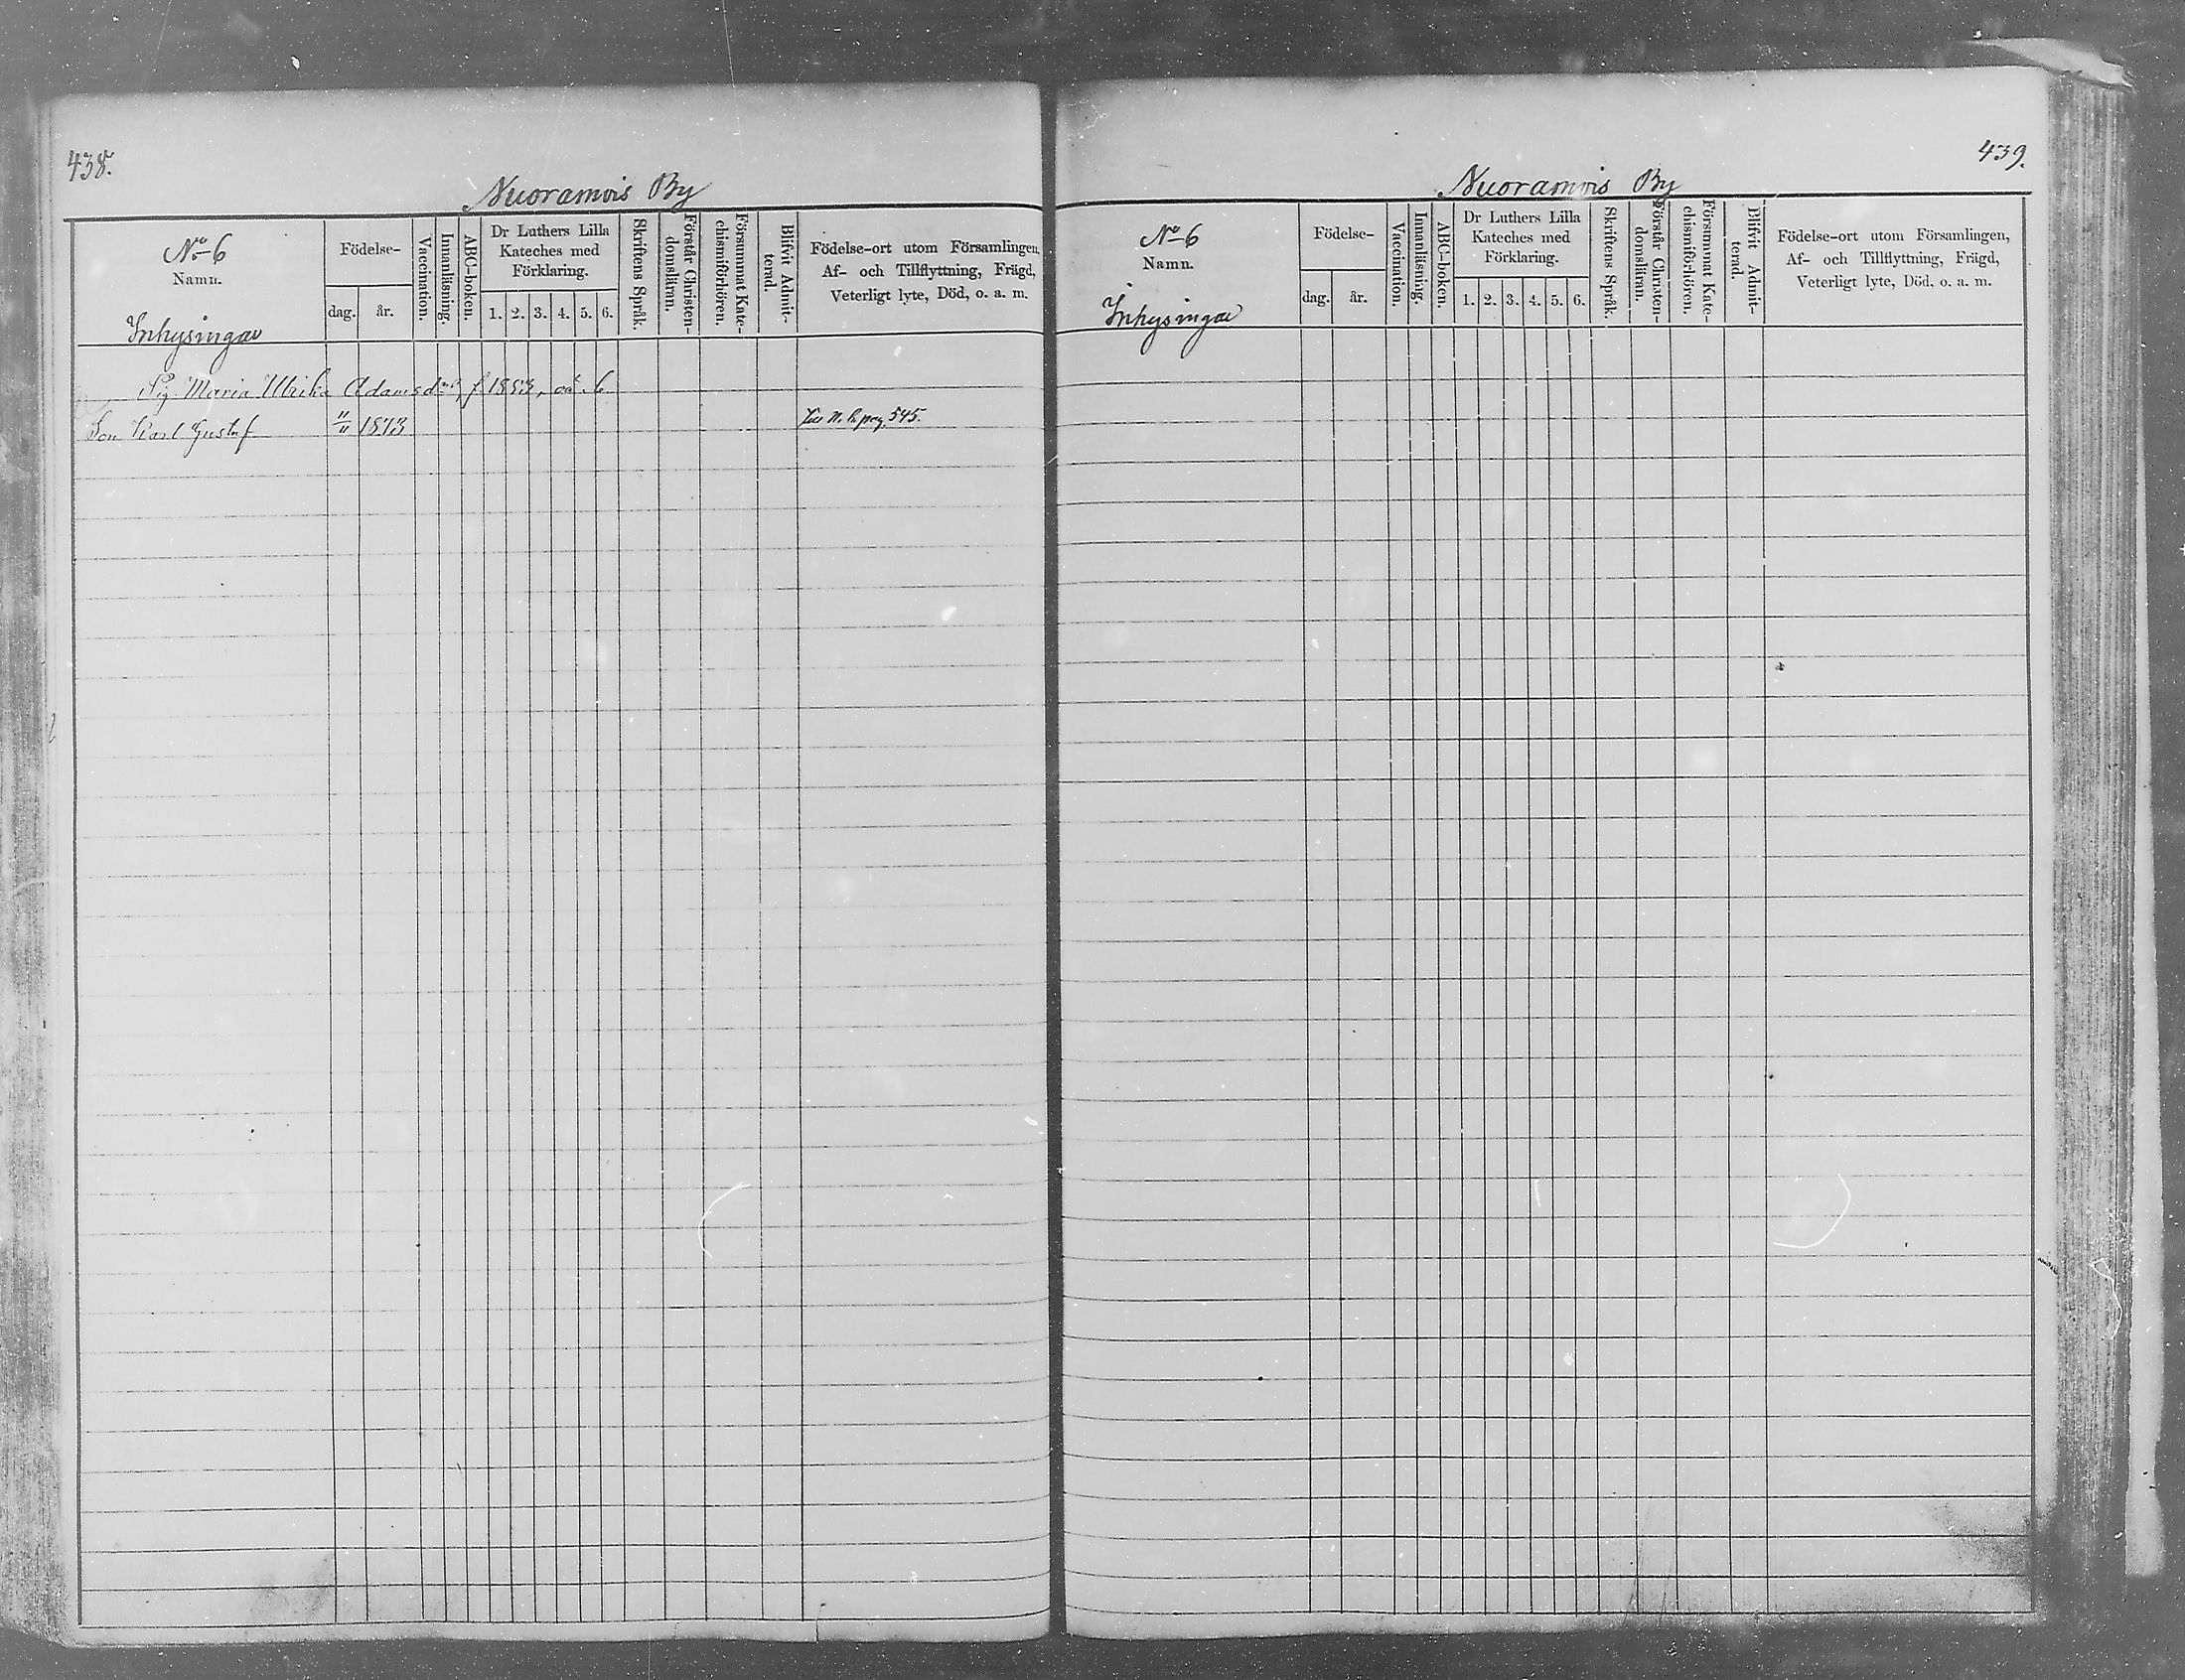 438.
Nuoramois By
No 6
Namn.
Inhysingar
Födelse-
dag.
år.
Vaccination.
Innanläsning.
ABC-boken.
Dr Luthers Lilla
Kateches med
Förklaring.
1. 2. 3. 4. 5. 6.
Skriftens Språk.
Förstår Christen-
domsläran.
Försummat Kate-
chismiförhören.
Blifvit Admit-
terad.
Födelse-ort utom Församlingen,
Af- och Tillflyttning, Frägd,
Veterligt lyte, Död, o. a. m.
Pig. Maria Ulrika Adamsdr, f. 1853, 6
Son Karl Gustaf 1873 545.
439.
Nuoramois By
No 6
Namn.
Inhysingar
Födelse-
dag.
år.
Vaccination.
Innanläsning.
ABC-boken.
Dr Luthers Lilla
Kateches med
Förklaring.
1. 2. 3. 4. 5. 6.
Skriftens Språk.
Förstår Christen-
domsläran.
Försummat Kate-
chismiförhören.
Blifvit Admit-
terad.
Födelse-ort utom Församlingen,
Af- och Tillflyttning, Frägd,
Veterligt lyte, Död, o. a. m.